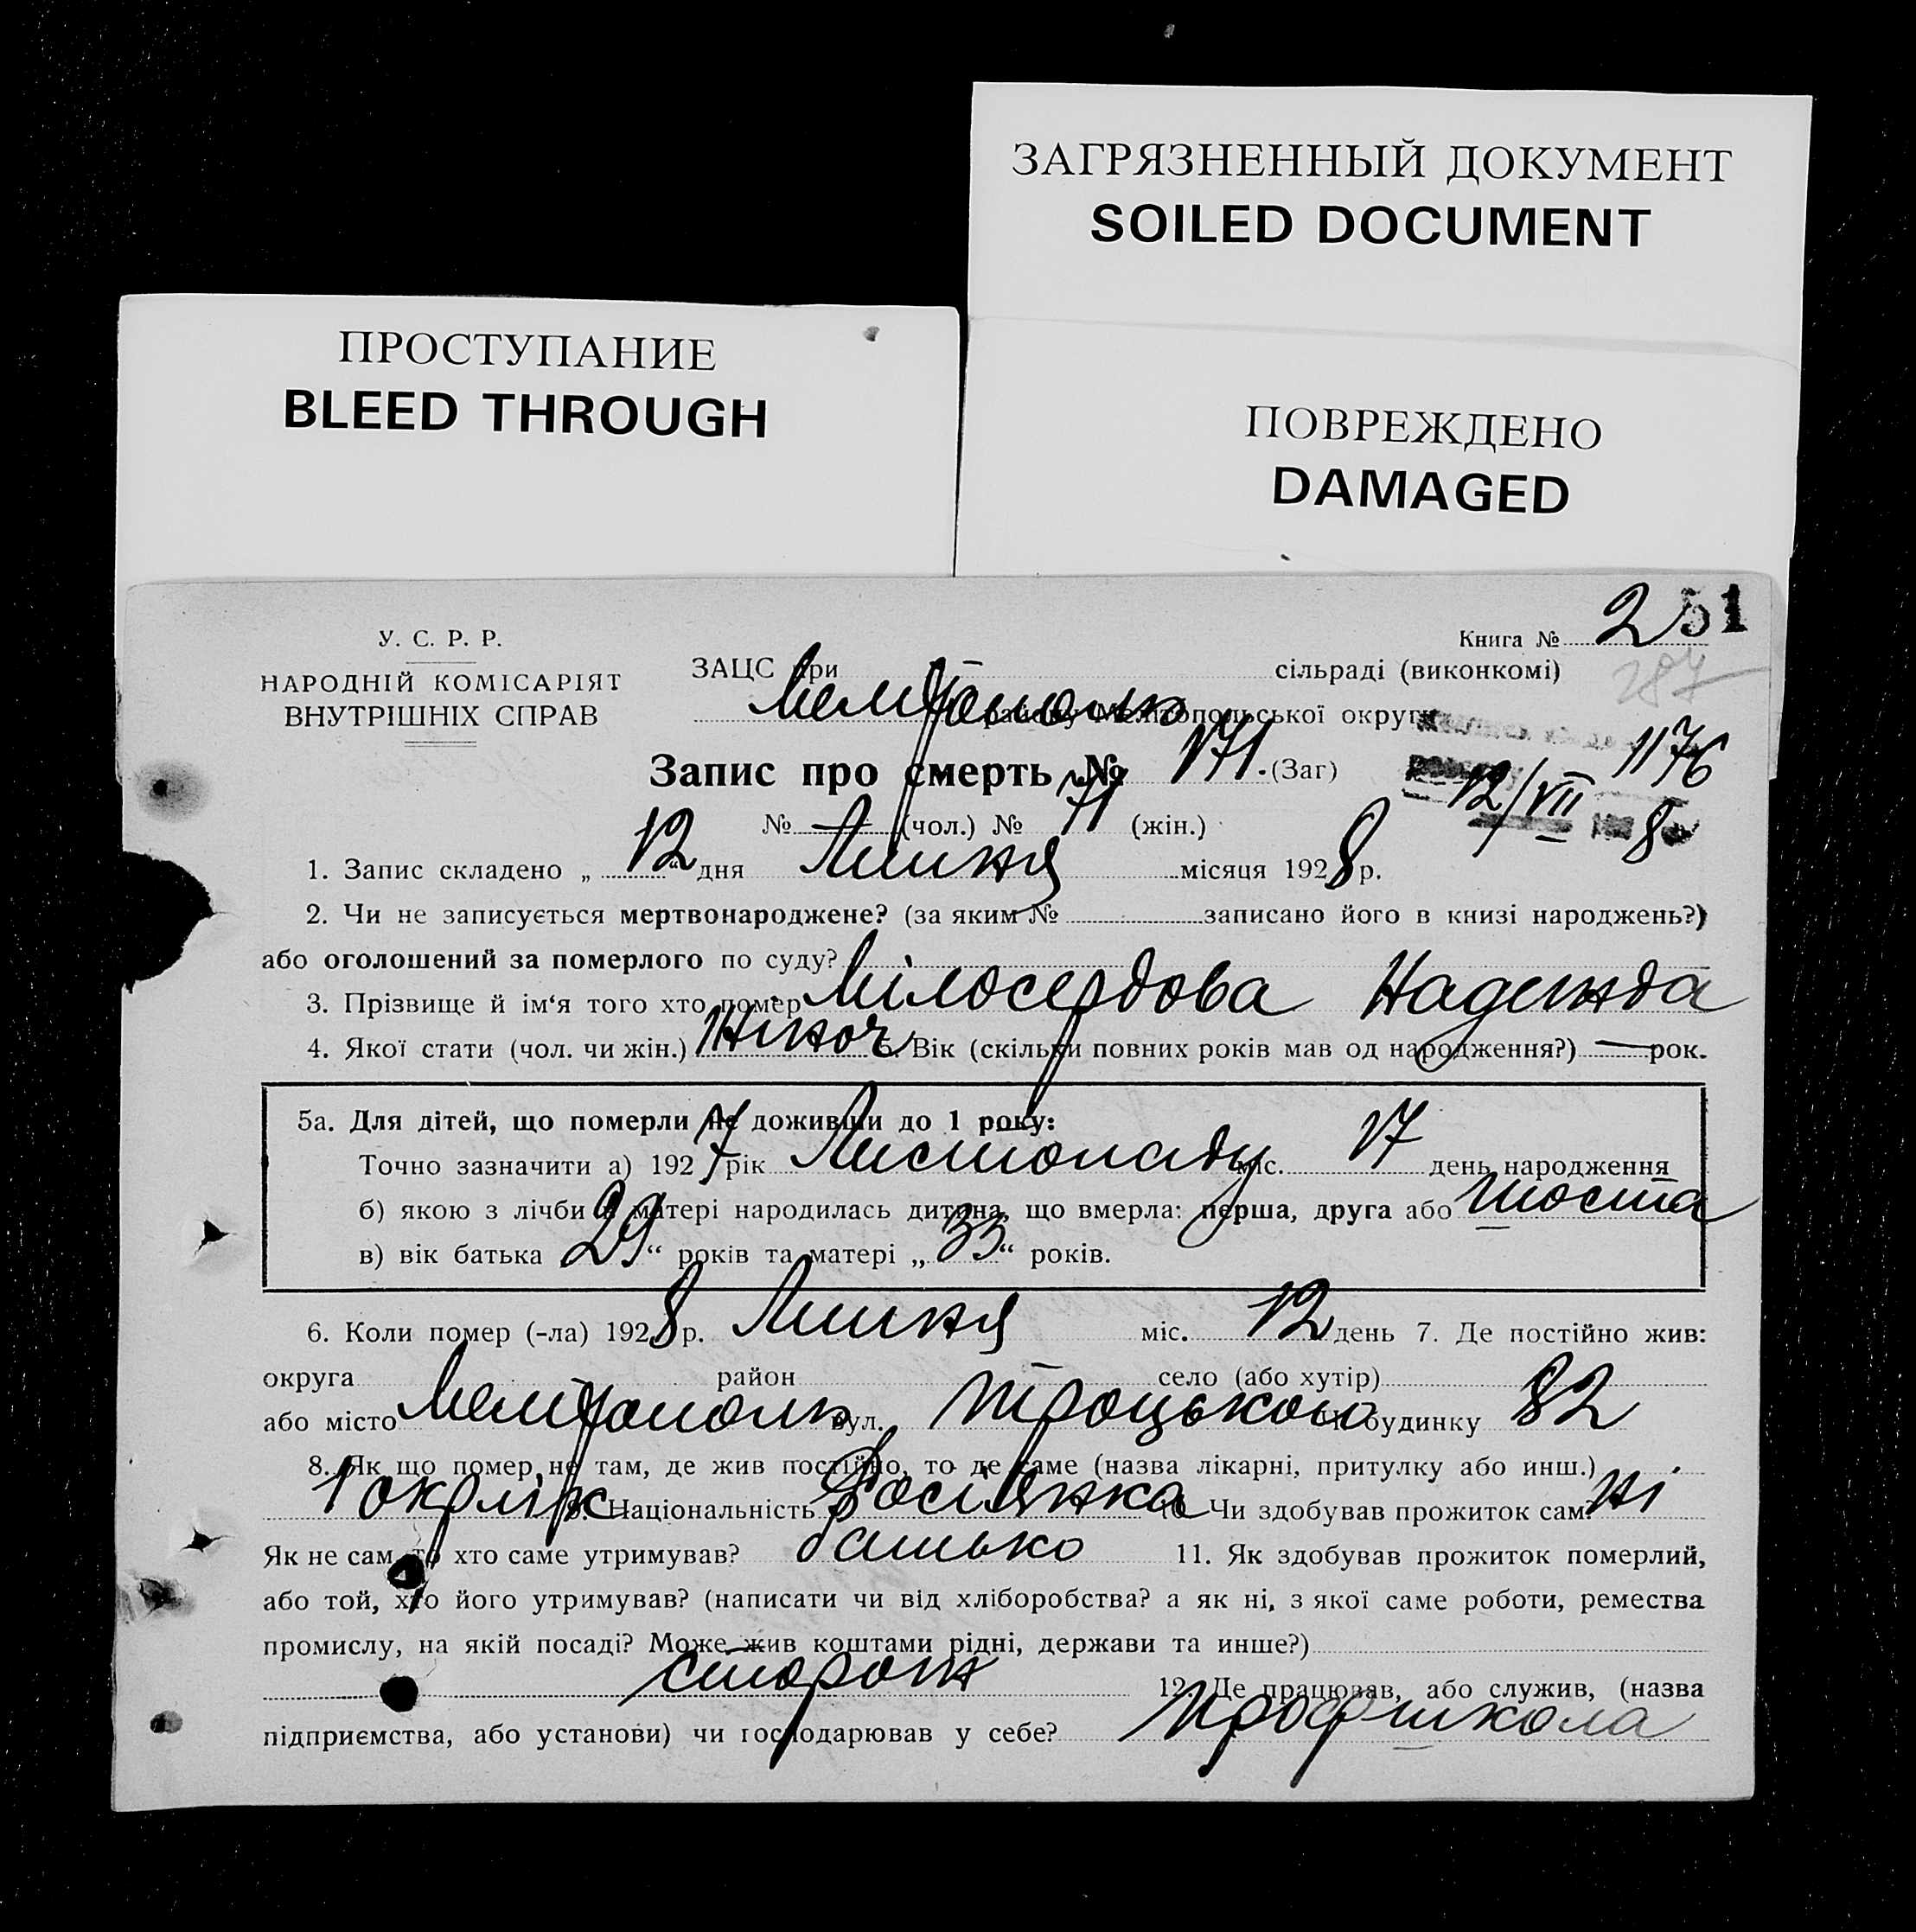 ЗАГРЯЗНЕННЫЙ ДОКУМЕНТ
SOILED DOCUMENT
ПРОСТУПАНИЕ
BLEED THROUGH
ПОВРЕЖДЕНО
DAMAGED
У. С. Р. Р.
НАРОДНІЙ КОМІСАРІЯТ
ВНУТРІШНІХ СПРАВ
Книга № 2 51
287
ЗАЦС при сільраді (виконкомі)
Мелітополь району Мелітопольської округи
1176
Запис про смерть № 171. (Заг)
12/VII 8
№ — (чол.) № 71 (жін.)
1. Запис складено „ 12 “ дня Липня місяця 1928 р.
2. Чи не записується мертвонароджене? (за яким № записано його в книзі народжень?)
або оголошений за померлого по суду?
3. Прізвище й ім‘я того хто помер Мілосердова Надежда
4. Якої стати (чол. чи жін.) Жіноч 5. Вік (скільки повних років мав од народження?) — рок.
5а. Для дітей, що померли не доживши до 1 року:
Точно зазначити а) 1927 рік Листопаду міс. 17 день народження
б) якою з лічби в матері народилась дитина, що вмерла: перша, друга або шоста
в) вік батька „ 29 “ років та матері „ 35 “ років.
6. Коли помер (-ла) 1928 р. Липня міс. 12 день 7. Де постійно жив:
округа район — село (або хутір)
або місто Мелітополь вул. Троцького № будинку 82
8. Як що помер не там, де жив постійно, то де саме (назва лікарні, притулку або инш.)
1 окрлік 9. Національність Росіянка 10. Чи здобував прожиток сам? ні
Як не сам, то хто саме утримував? батько 11. Як здобував прожиток померлий,
або той, хто його утримував? (написати чи від хліборобства? а як ні, з якої саме роботи, ремества
промислу, на якій посаді? Може жив коштами рідні, держави та инше?)
сторож 12. Де працював, або служив, (назва
підприємства, або установи) чи господарював у себе? Профшкола